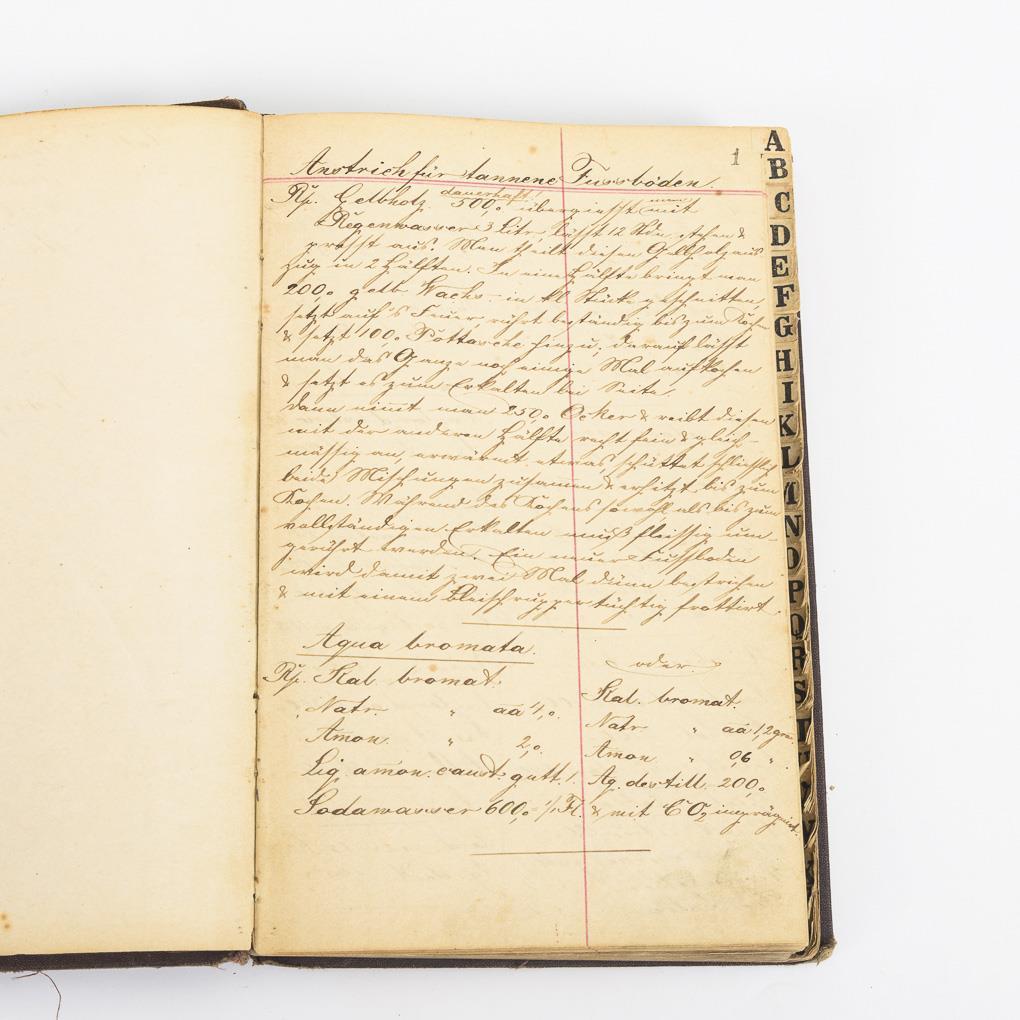 1
Anstrich für tannene Fussböden.
dauerhaft!
Rp. Gelbholz 500,0 übergiesst man mit
Regenwasser 3 Liter lässt 12 Stdn. stehen &
presst aus. Man theilt diesen Gelbholzaus
zug in 2 Hälften. In eine Hälfte bringt man
200,0 gelb. Wachs in kl. Stücke geschnitten,
setzt auf's Feuer, rührt beständig bis zum Kochen
& setzt 100,0 Pottasche hinzu; darauf lässt
man das Ganze noch einige Mal aufkochen
& setzt es zum Erkalten bei Seite.
Dann nimt man 250,0 Ocker & reibt diesen
mit der anderen Hälfte recht fein & gleich-
mässig an, erwärmt etwas, schüttet schliesslich
beide Mischungen zusamen & erhitzt bis zum
Kochen. Während des Kochens sowohl als bis zum
vollständigen Erkalten muß fleissig um-
gerührt werden. Ein neuer Fussboden
wird damit zwei Mal dünn bestrichen
& mit einem tüchtig frottirt.
Aqua bromata.
Rp. Kal. bromat.
Natr. " aa 4,0.
Amon. " 2,0.
Liq. amon. caust. gutt. 1.
Sodawasser 600,0 = 1/1 Fl.
oder
Kal. bromat.
Natr. " aa 1,2 gr.
Amon " 0,6 ".
Aq. destill. 200,0
& mit CO2 imprägnirt.
A
B
C
D
E
F
G
H
I
K
L
M
N
O
P
Q
R
S
T